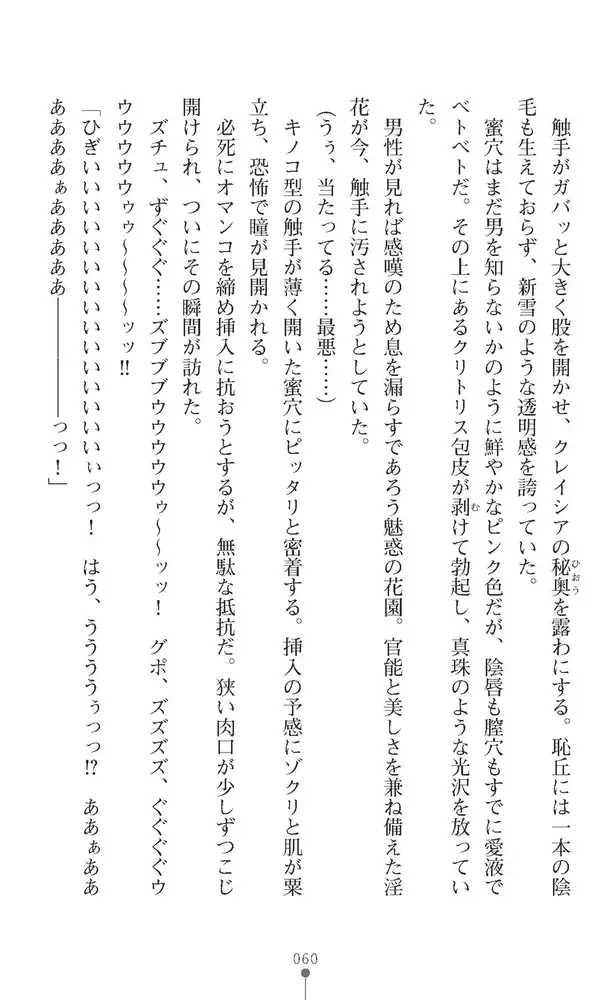 触手がガバッと大きく股を開かせ、クレイシアの秘奥を露わにする。恥丘には一本の陰
ひおう
毛も生えておらず、新雪のような透明感を誇っていた。
蜜穴はまだ男を知らないかのように鮮やかなピンク色だが、陰唇も膣穴もすでに愛液で
ベトベトだ。その上にあるクリトリス包皮が剥けて勃起し、真珠のような光沢を放ってい
む
た。
男性が見れば感嘆のため息を漏らすであろう魅惑の花園。官能と美しさを兼ね備えた淫
花が今、触手に汚されようとしていた。
(うぅ、当たってる……最悪……)
キノコ型の触手が薄く開いた蜜穴にピッタリと密着する。挿入の予感にゾクリと肌が粟
立ち、恐怖で瞳が見開かれる。
必死にオマンコを締め挿入に抗おうとするが、無駄な抵抗だ。狭い肉口が少しずつこじ
開けられ、ついにその瞬間が訪れた。
ズチュ、ずぐぐぐ……ズブブブウウウウウゥ〜〜ッッ！　グポ、ズズズズ、ぐぐぐぐウ
ウウウウウゥゥ〜〜〜〜ッッ‼
「ひぎいいいいいいいいいいいいいいいいぃっっ！　はう、うううぅっっ⁉　ああぁああ
ああああぁああああああ――――――っっ！」
060